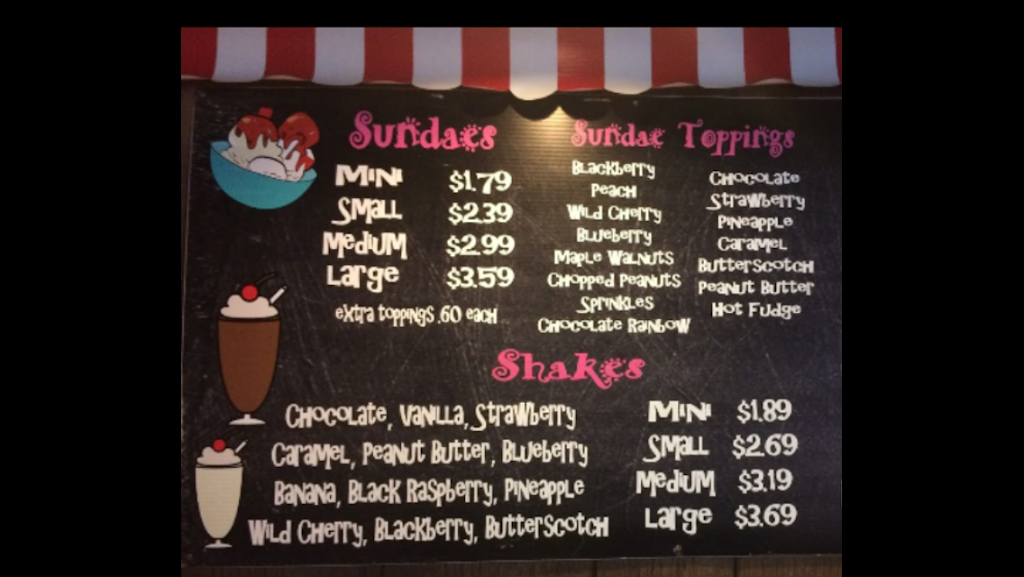 Sundaes
Mini $1.79
Small $2.39
Medium $2.99
Large $3.59
extra toppings .60 each
Sundae Toppings
Blackberry
Peach
Wild Cherry
Blueberry
Maple Walnuts
Chopped Peanuts
Sprinkles
Chocolate Rainbow
Chocolate
Strawberry
Pineapple
Caramel
Butterscotch
Peanut Butter
Hot Fudge
Shakes
Chocolate, Vanilla, Strawberry
Caramel, Peanut Butter, Blueberry
Banana, Black Raspberry, Pineapple
Wild Cherry, Blackberry, Butterscotch
Mini $1.89
Small $2.69
Medium $3.19
Large $3.69